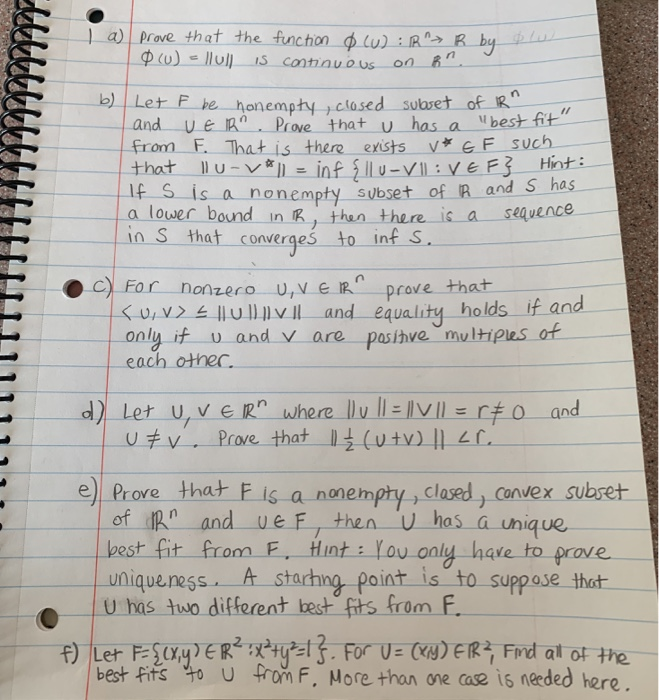 1 a) Prove that the function φ(u) : Rⁿ → R by
φ(u) = ||u|| is continuous on Rⁿ.
b) Let F be nonempty, closed subset of Rⁿ
and u ∈ Rⁿ. Prove that u has a "best fit"
from F. That is there exists v* ∈ F such
that ||u-v*|| = inf {||u-v|| : v ∈ F} Hint:
If S is a nonempty subset of R and S has
a lower bound in R, then there is a sequence
in S that converges to inf S.
c) For nonzero u, v ∈ Rⁿ prove that
<u, v> ≤ ||u|| ||v|| and equality holds if and
only if u and v are positive multiples of
each other.
d) Let u, v ∈ Rⁿ where ||u|| = ||v|| = r ≠ 0 and
u ≠ v. Prove that ||½(u+v)|| < r.
e) Prove that F is a nonempty, closed, convex subset
of Rⁿ and u ∈ F, then u has a unique
best fit from F. Hint: You only have to prove
uniqueness. A starting point is to suppose that
u has two different best fits from F.
f) Let F={(x,y) ∈ R² : x²+y²=1}. For u = (x,y) ∈ R², Find all of the
best fits to u from F. More than one case is needed here.